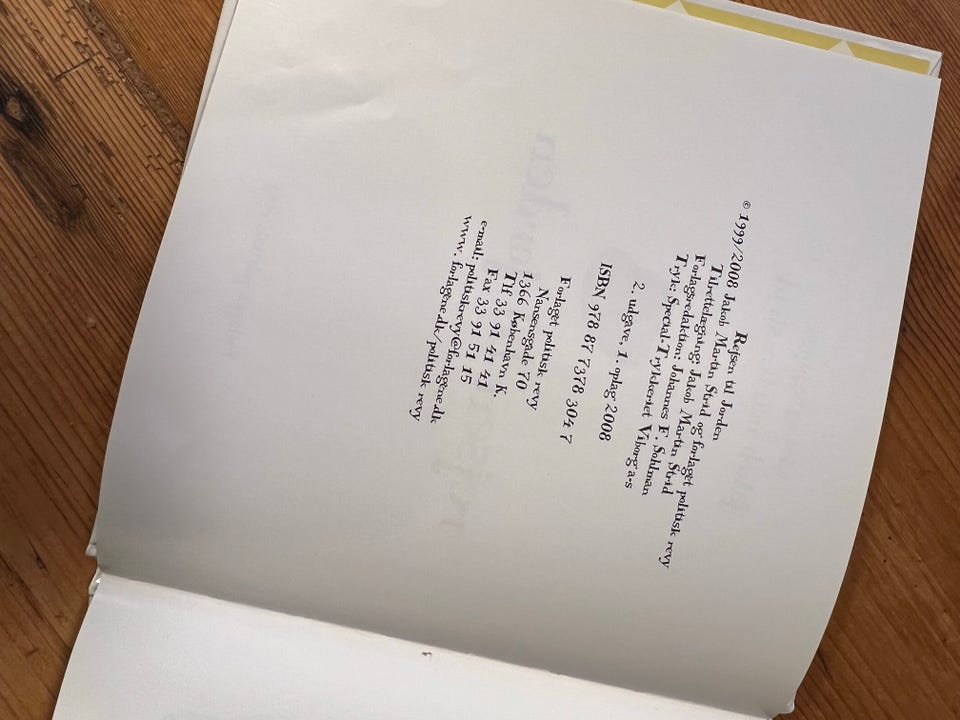 Rejsen til Jorden
© 1999/2008 Jakob Martin Strid og forlaget politisk revy
Tilrettelægning: Jakob Martin Strid
Forlagsredaktion: Johannes F. Sohlman
Tryk: Special-Trykkeriet Viborg a-s
2. udgave, 1. oplag 2008
ISBN 978 87 7378 304 7
Forlaget politisk revy
Nansensgade 70
1366 København K.
Tlf 33 91 41 41
Fax 33 91 51 15
e-mail: politiskrevy@forlagene.dk
www. forlagene.dk/politisk revy